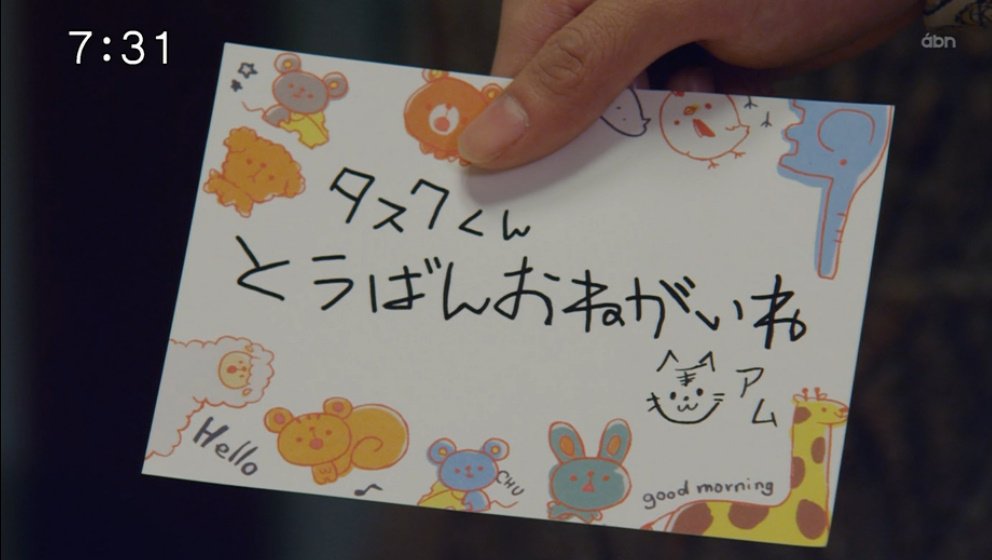 7:31
ábn
タスクくん
とうばんおねがいね
アム
Hello
CHU
good morning